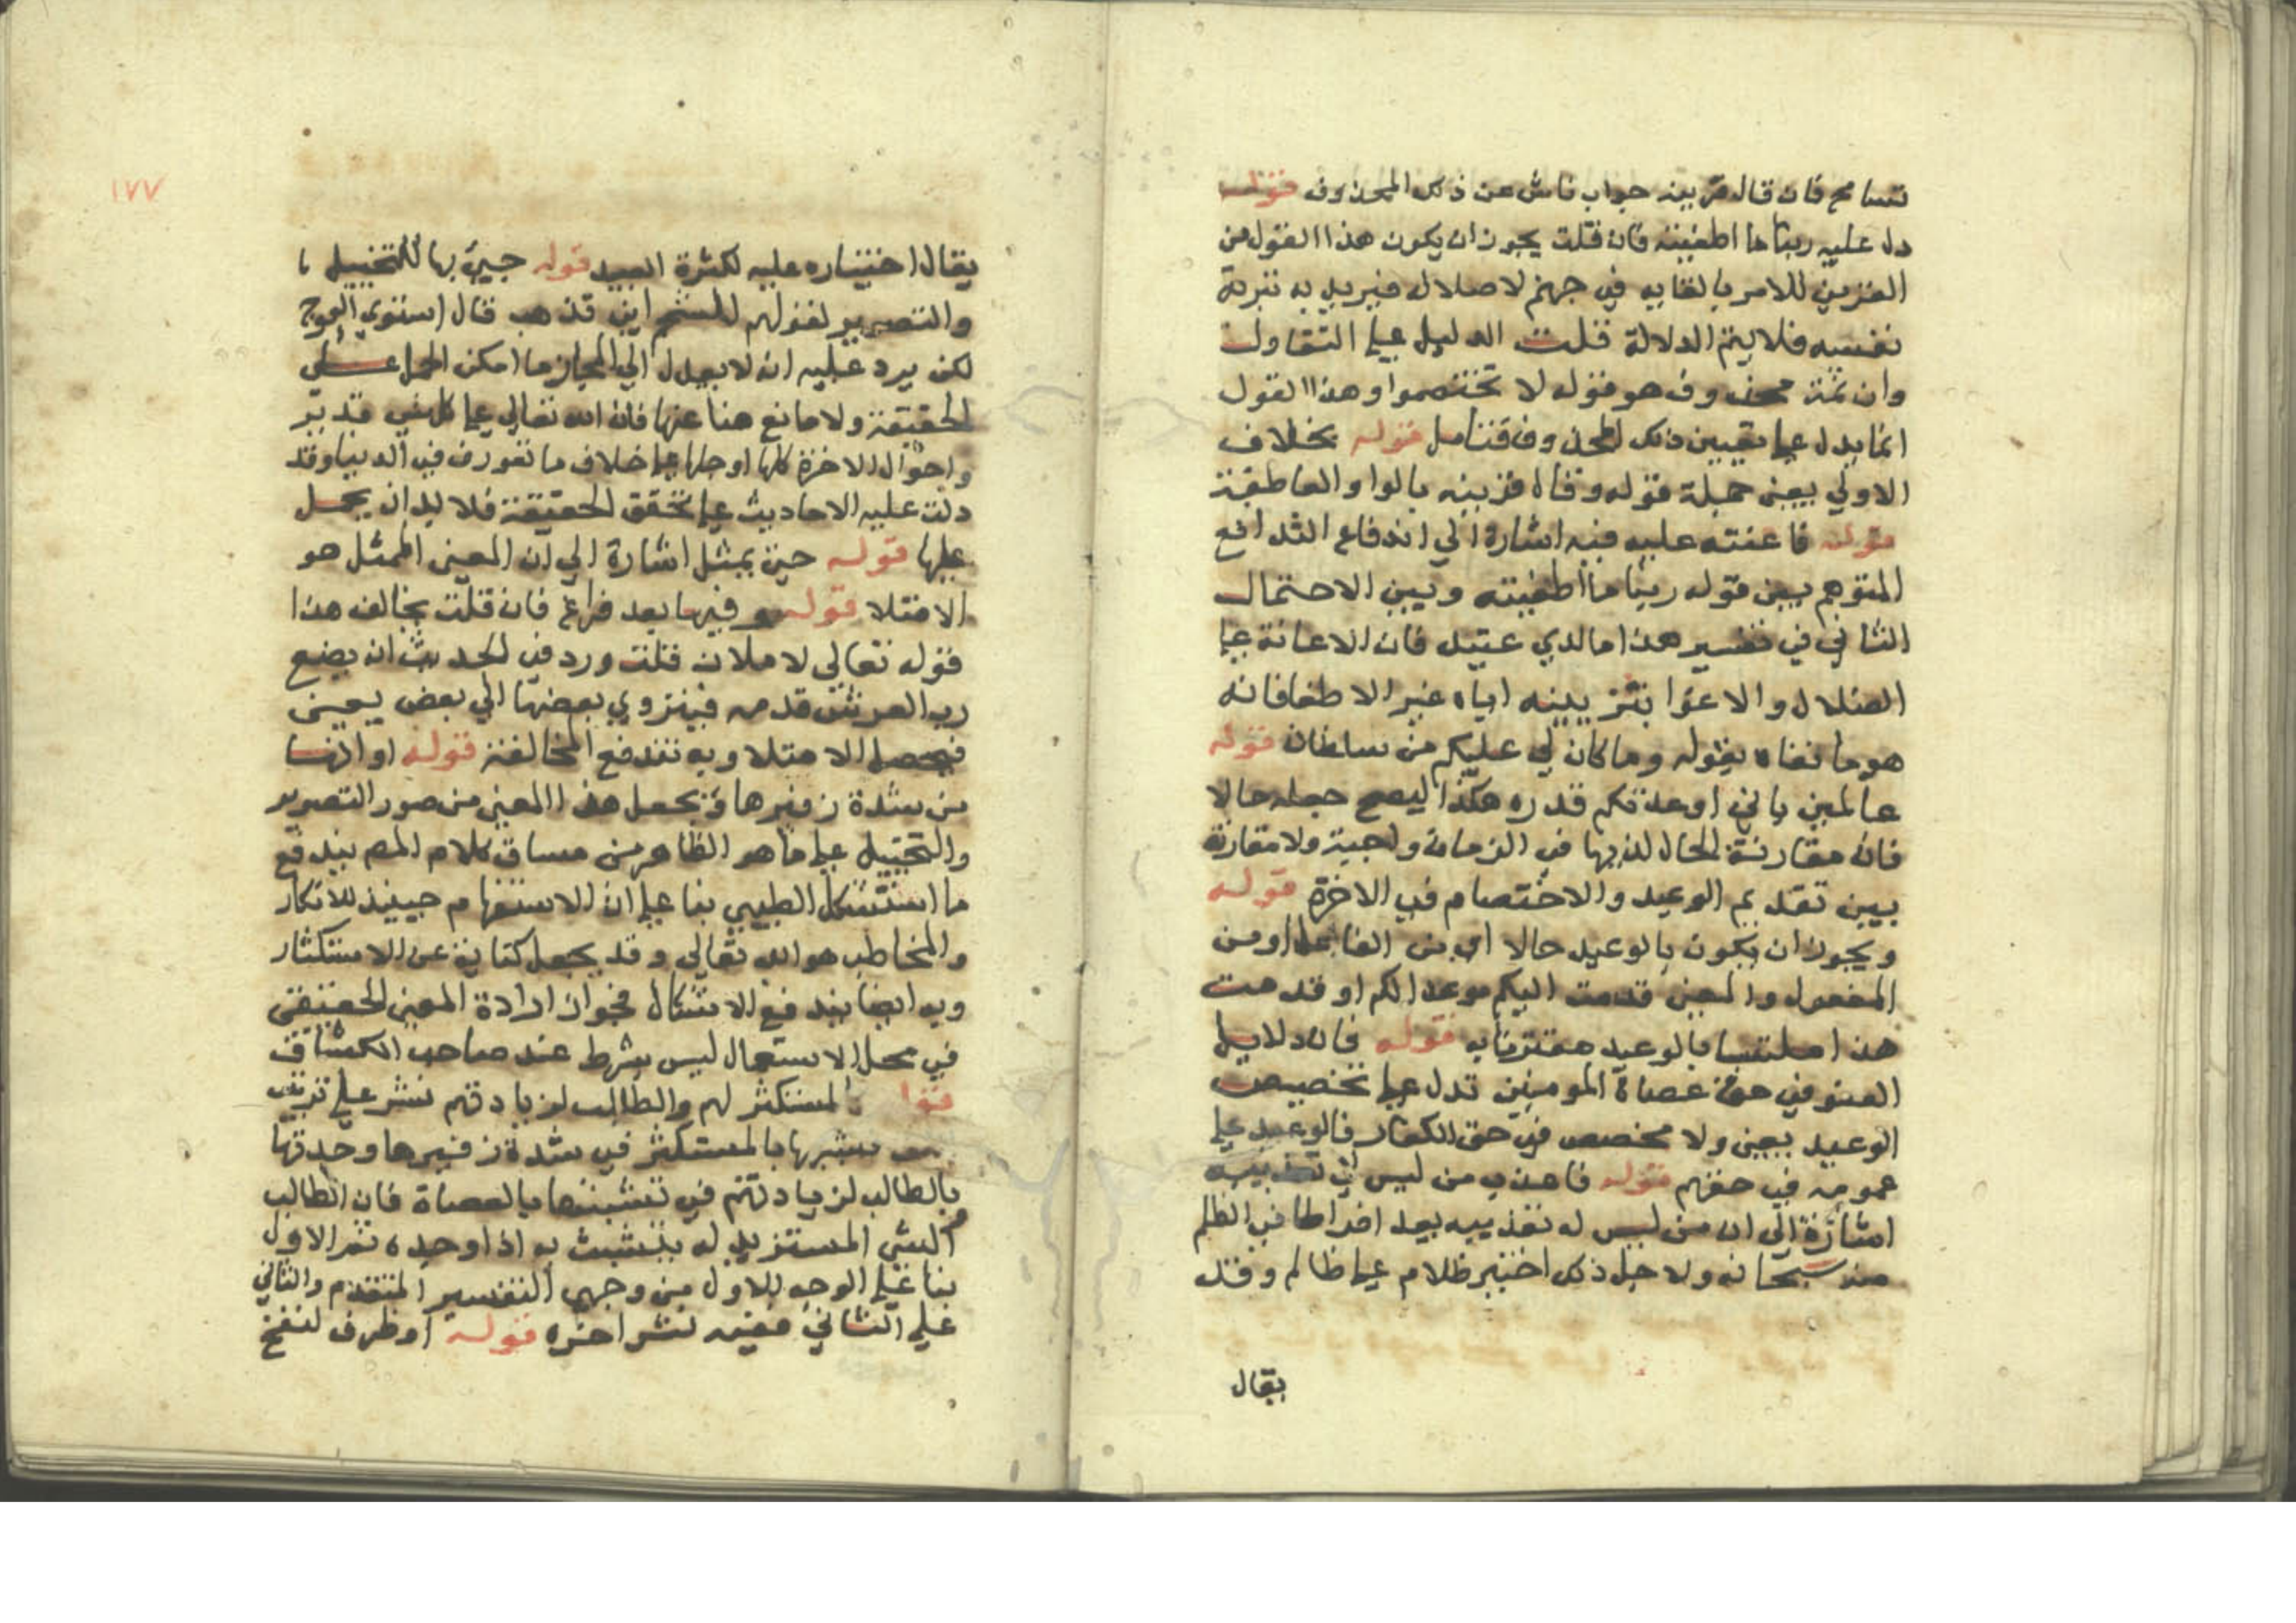 تسامح فان قال قرينه جواب ناش عن ذلك المحذوف قوله
دل عليه ربنا ما اطغيته فان قلت يجوز ان يكون هذا القول من
القرين للامر بالقايه في جهنم لاضلال فيريد به تبرئة
نفسه فلا يتم الدلالة قلت الدليل على التقاول
وان ثمة محذوف هو قوله لا تختصموا وهذا القول
انما يدل على تعيين ذلك المحذوف فتامل قوله بخلاف
الاولي يعني جملة قوله وقال قرينه بالواو العاطفة
قوله فاعنته عليه فيه اشارة الي اندفاع التدافع
المتوهم بين قوله ربنا ما اطغيته وبين الاحتمال
الثاني في تفسير هذا ما لدي عتيد فان الاعانة علي
الضلال والاغوا بتزيينه اياه غير الاطغا فانه
هو ما نفاه بقوله وما كان لي عليكم من سلطان قوله
عالمين باني اوعدتكم قدره هكذا ليصح جعله حالا
فان مقارنة الحال لذيها في الزمان واجبة ولا مقارنة
بين تقديم الوعيد والاختصام في الاخرة قوله
ويجوز ان يكون بالوعيد حالا اي من الفاعل او من
المفعول والمعني قدمت اليكم موعدا لكم او قدمت
هذا ملتبسا بالوعيد مقترنا به قوله فان دلايل
العفو في حق عصاة المومنين تدل علي تخصيص
الوعيد يعني ولا مخصص في حق الكفار فالوعيد علي
عمومه في حقهم قوله فاعذب من ليس لي تعذيبه
اشارة الي ان من ليس له تعذيبه يعد افراطا في الظلم
منه سبحانه ولاجل ذلك اختير ظلام علي ظالم وقد
يقال
١٧٧
يقال اختياره عليه لكثرة العبيد قوله جيئ بها للتخييل
والتصوير لقولهم للشحم اين تذهب قال استوي العوج
لكن يرد عليه انه لا يعدل الي المجاز ما امكن الحمل علي
الحقيقة ولا مانع هنا عنها فان الله تعالي علي كل شي قدير
واحوال الاخرة كلها او جلها علي خلاف ما تعورف في الدنيا وقد
دلت عليه الاحاديث علي تحقق الحقيقة فلا بد ان يحمل
عليها قوله حتي تمتلي اشارة الي ان المعني الممثل هو
الامتلا قوله وفيها بعد فراغ فان قلت يخالف هذا
قوله تعالي لاملان قلت ورد في الحديث انه يضع
رب العرش قدمه فينزوي بعضها الي بعض يعني
فيحصل الامتلا وبه تندفع المخالفة قوله او انها
من شدة زفيرها ويجعل هذا المعني من صور التصوير
والتخييل علي ما هو الظاهر من مساق كلام المص يندفع
ما استشكل الطيبي بنا علي ان الاستفهام حينيذ للانكار
والمخاطب هو الله تعالي وقد يجعل كناية عن الاستكثار
وبه ايضا يندفع الاشكال فجواز ارادة المعني الحقيقي
في محل الاستعمال ليس بشرط عند صاحب الكشاف
كالمستكثر لهم والطالب لزيادتهم نشر علي ترتيب
تشبيهها بالمستكثر في شدة زفيرها وحدتها
بالطالب لزيادتهم في تشبثها بالعصاة فان الطالب
للشي المستزيد له يتشبث به اذا وجده ثم الاول
بنا علي الوجه الاول من وجهي التفسير المتقدم والثاني
علي الثاني ففيه نشر اخره قوله او ظرف لنفخ